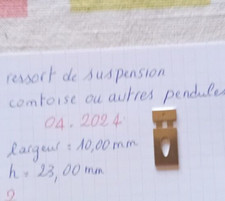 ressort de suspension
comtoise ou autres pendules
04.2024
largeur = 10,00 mm
h = 23,00 mm